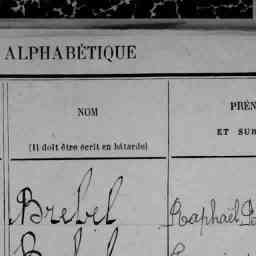 ALPHABÉTIQUE
NOM
PRÉN
(Il doit être écrit en bâtarde)
ET SUR
Brebel
Raphaël